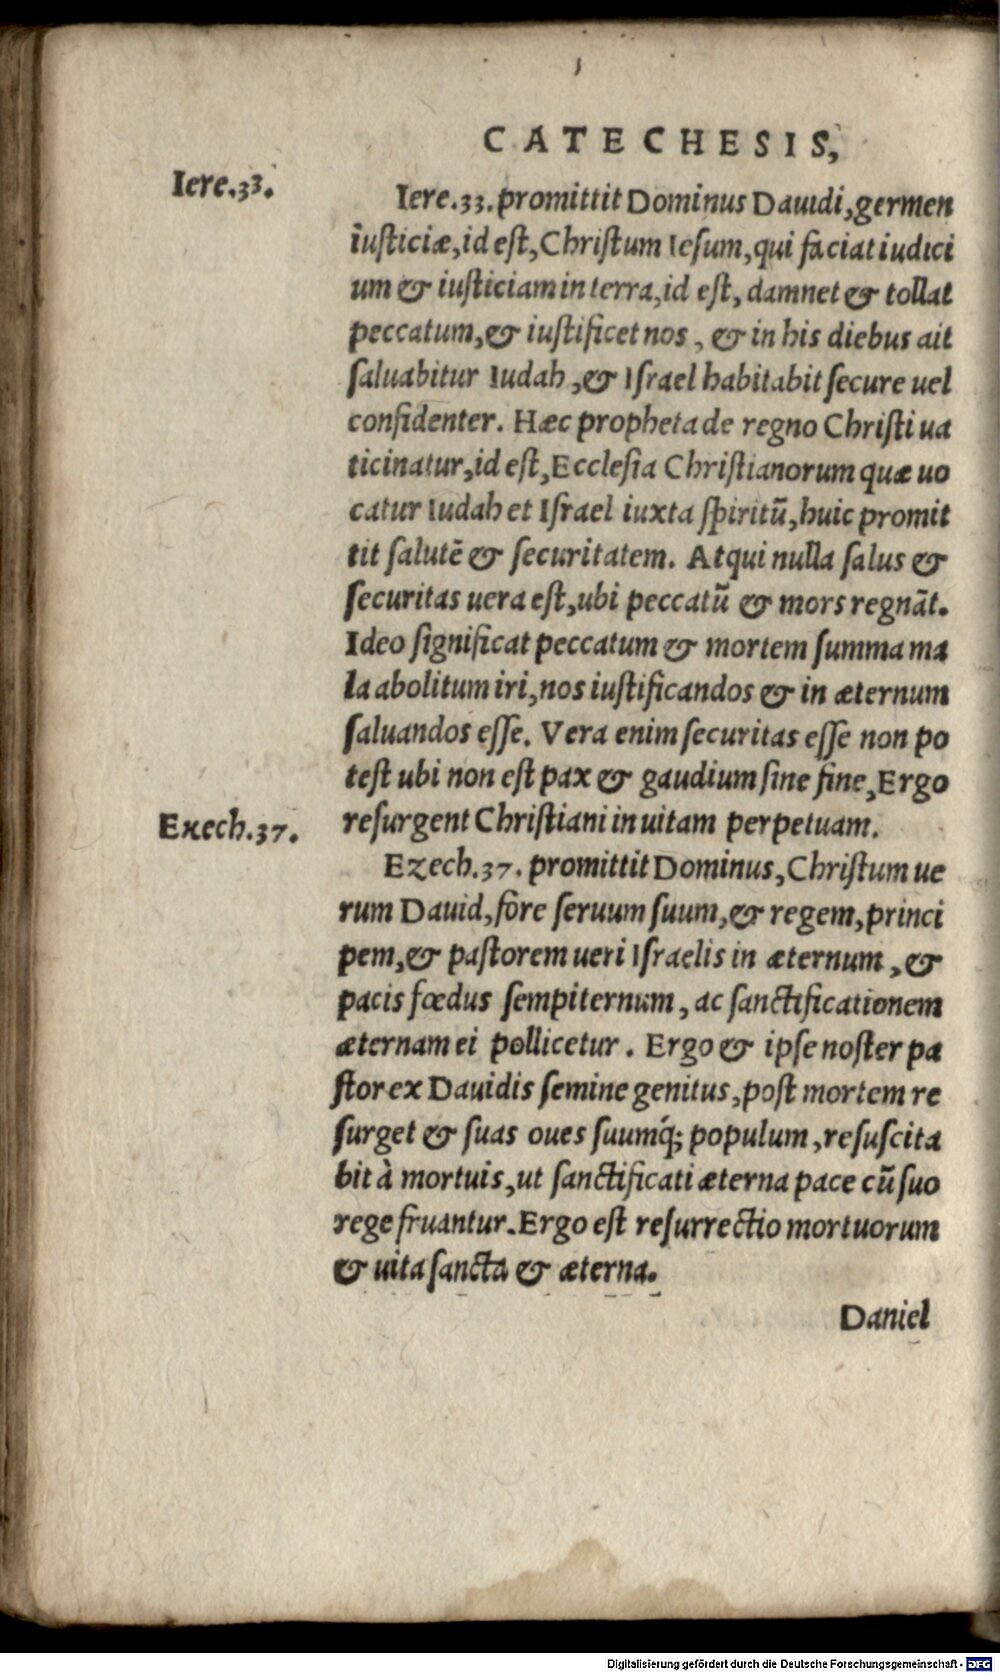 CATECHESIS,
Iere.33.
Iere.33. promittit Dominus Dauidi, germen
iusticiæ, id est, Christum Iesum, qui faciat iudici
um & iusticiam in terra, id est, damnet & tollat
peccatum, & iustificet nos, & in his diebus ait
saluabitur Iudah, & Israel habitabit secure uel
confidenter. Hæc propheta de regno Christi ua
ticinatur, id est, Ecclesia Christianorum quæ uo
catur Iudah et Israel iuxta spiritū, huic promit
tit salutē & securitatem. Atqui nulla salus &
securitas uera est, ubi peccatū & mors regnāt.
Ideo significat peccatum & mortem summa ma
la abolitum iri, nos iustificandos & in æternum
saluandos esse. Vera enim securitas esse non po
test ubi non est pax & gaudium sine fine, Ergo
resurgent Christiani in uitam perpetuam.
Exech.37.
Ezech.37. promittit Dominus, Christum ue
rum Dauid, fore seruum suum, & regem, princi
pem, & pastorem ueri Israelis in æternum, &
pacis fœdus sempiternum, ac sanctificationem
æternam ei pollicetur. Ergo & ipse noster pa
stor ex Dauidis semine genitus, post mortem re
surget & suas oues suumq́; populum, resuscita
bit à mortuis, ut sanctificati æterna pace cū suo
rege fruantur. Ergo est resurrectio mortuorum
& uita sancta & æterna.
Daniel
Digitalisierung gefördert durch die Deutsche Forschungsgemeinschaft - DFG